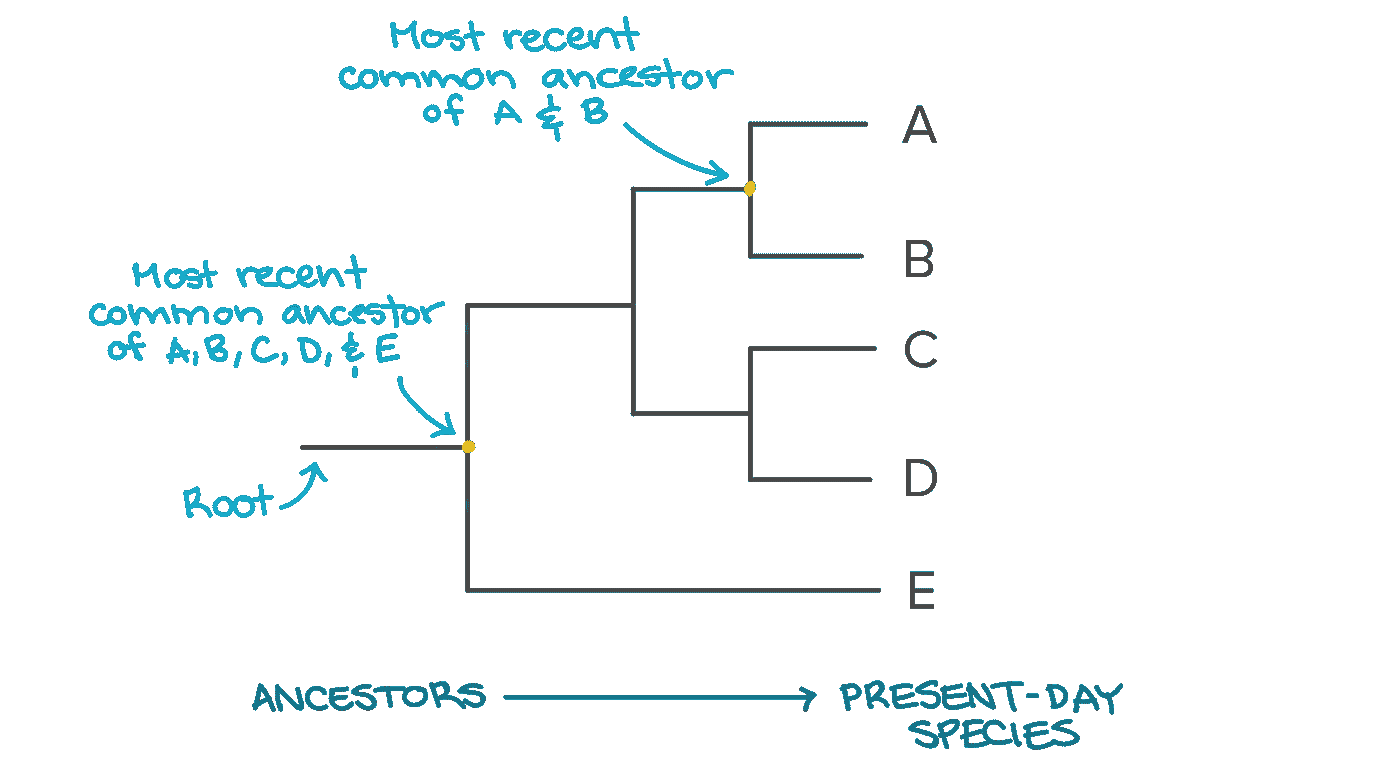 Most recent
common ancestor
of A & B
A
B
Most recent
common ancestor
of A, B, C, D, & E
C
Root
D
E
ANCESTORS
PRESENT-DAY
SPECIES